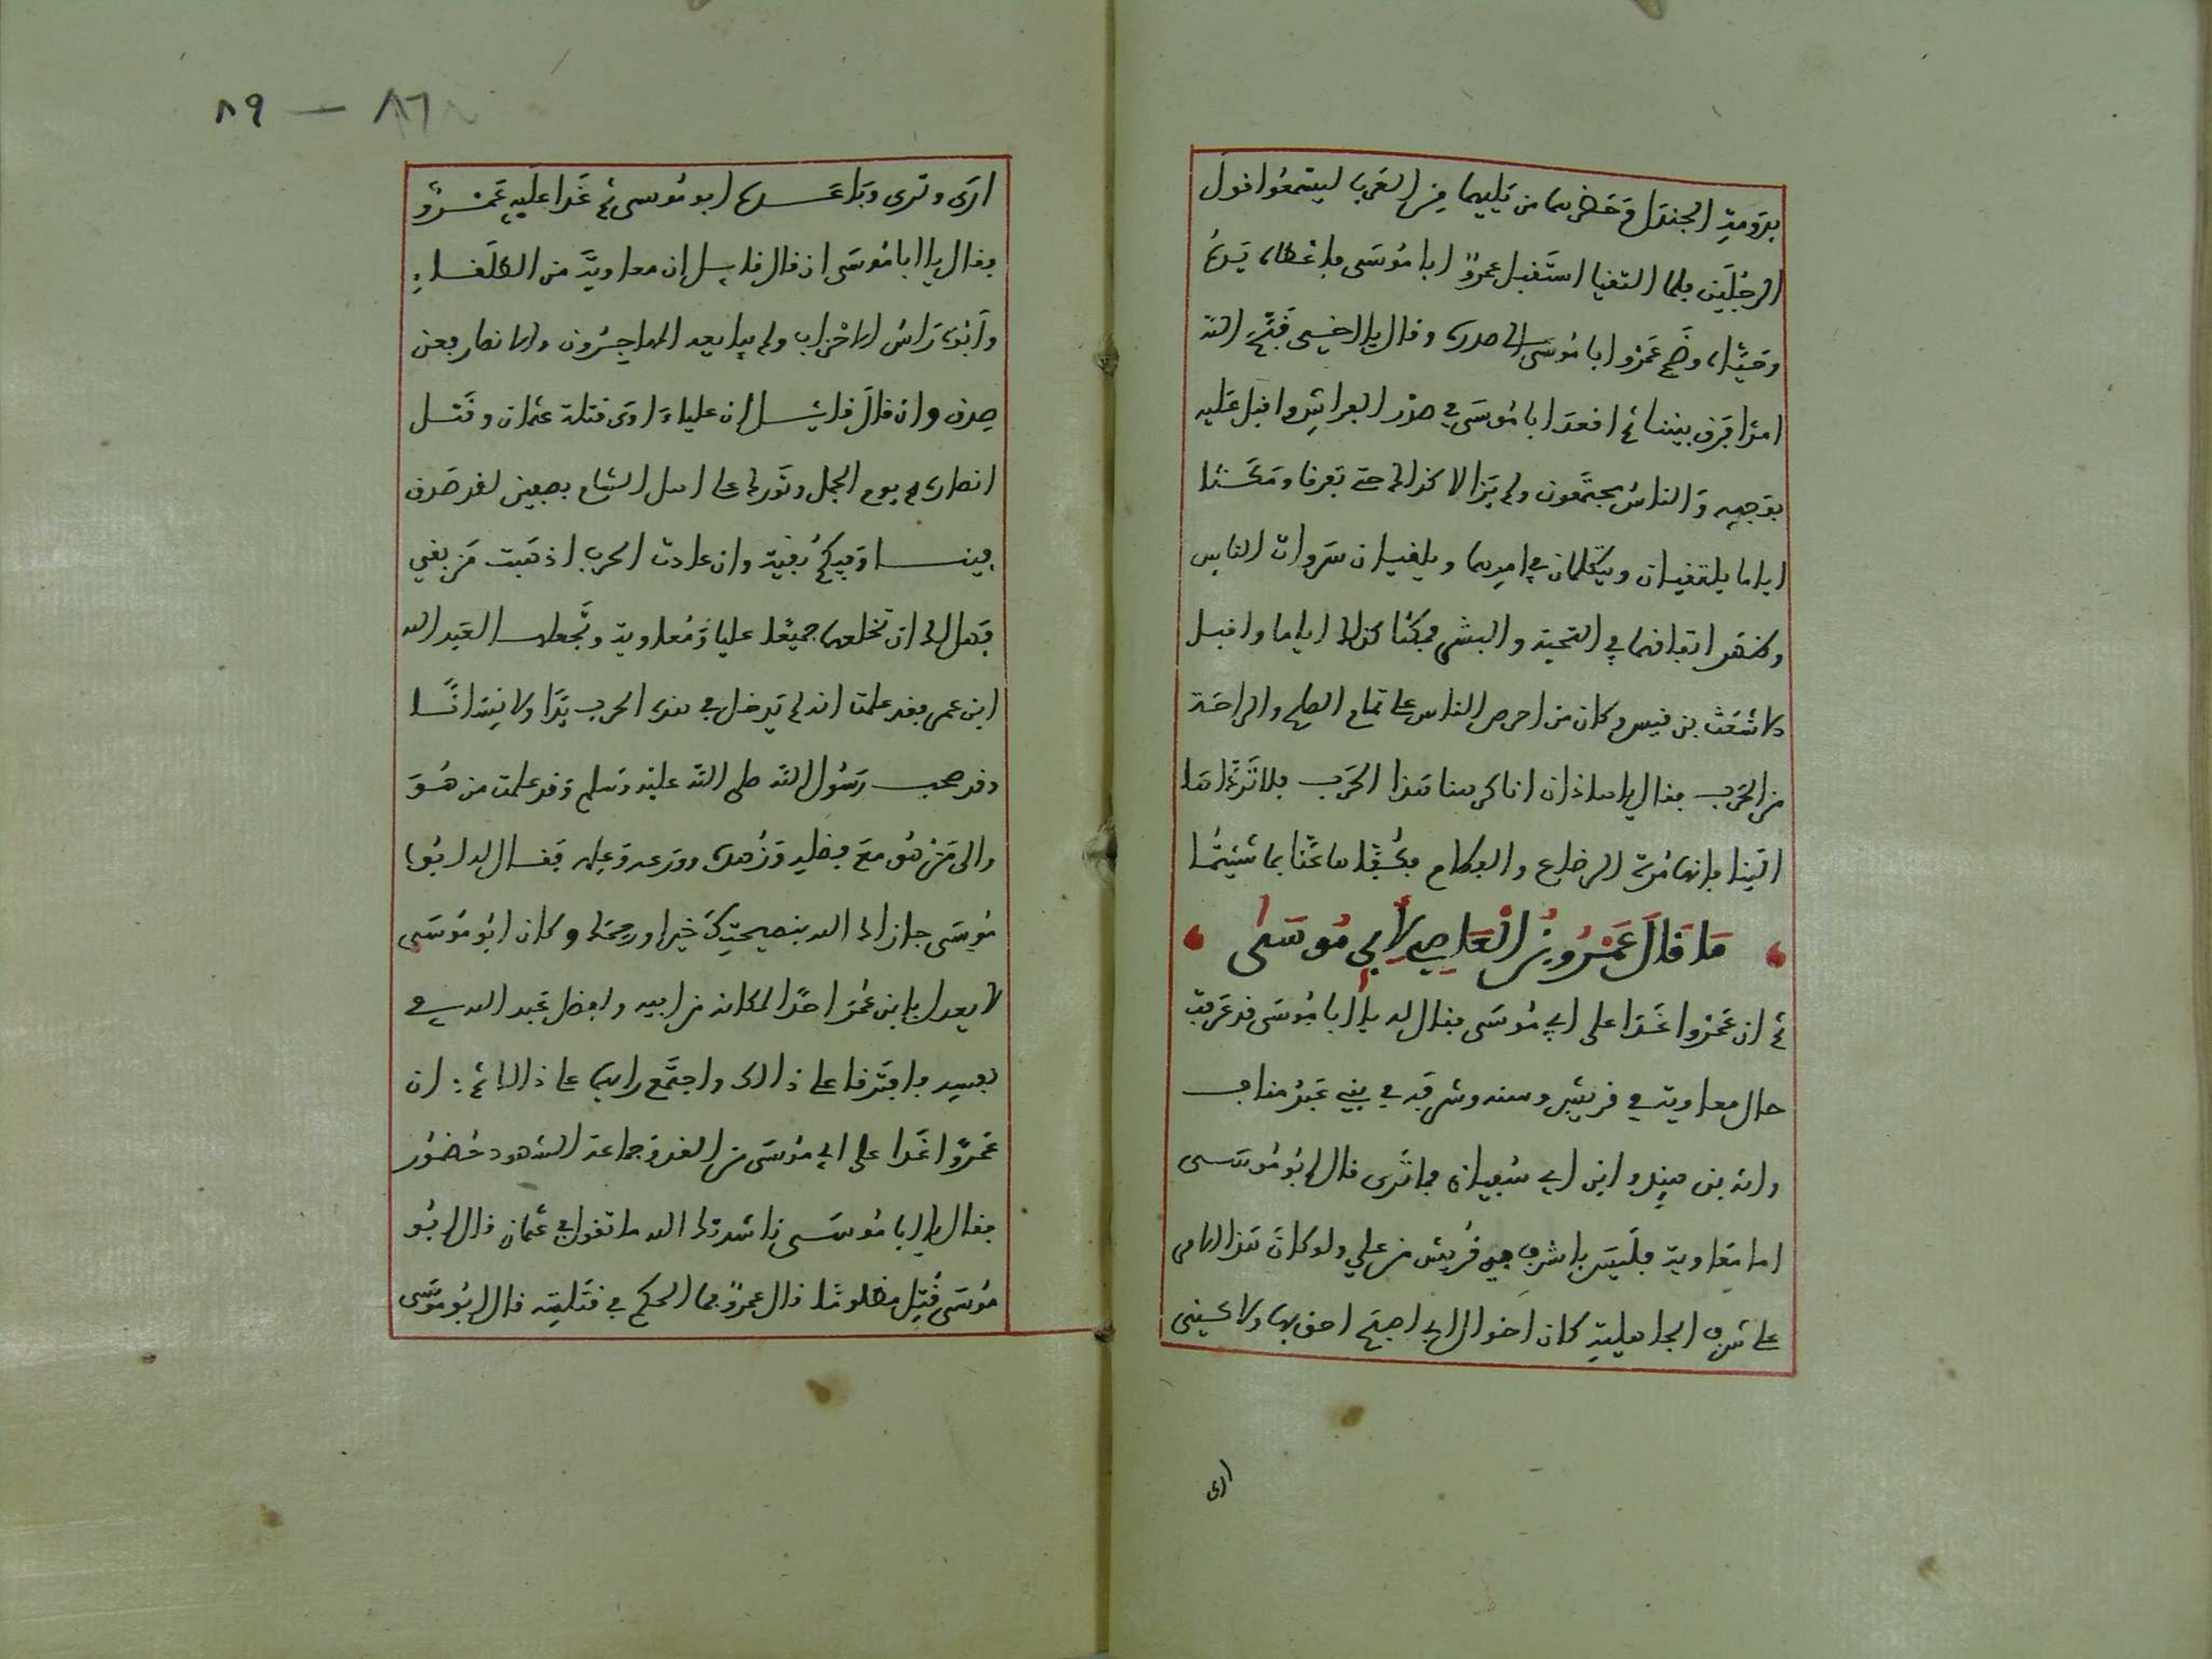 بدومة الجندل وحضرهما من يليهما من العرب ليستمعوا قول
الرجلين فلما التقيا استقبل عمرو ابا موسى فاعطاه يده
وحياه وضم عمرو ابا موسى الى صدره وقال يا اخي قبح الله
امرا فرق بيننا ثم اقعد ابا موسى في صدر الفراش واقبل عليه
بوجهه والناس مجتمعون ولم يزالا كذلك حتى تفرقا ومكثا
اياما يلتقيان ويتكلمان في امرهما ويلقيان سروات الناس
اتفاقهما في التحية والبشر فمكثا كذلك اياما واقبل
الاشعث بن قيس وكان من احرص الناس على تمام الصلح والراحة
من الحرب فقال يا هاذان انا كرهنا هذا الحرب فلا تردانها
الينا فانها مرة الرضاع والفطام بما شيتما
ما قال عمرو بن العاصي لأبي موسى
ثم ان عمروا غدا على ابي موسى فقال له يا ابا موسى قد عرفت
حال معاوية في قريش وسنه وشرفه في بني عبد مناف
وانه بن هند وابن ابي سفيان فما ترى قال ابو موسى
اما معاوية فليس باشرف في قريش من علي ولو كان هذا الامر
على شرف الجاهلية كان اخوال ابي احق بها ولاكنني
ارى
ارى وترى وباعده ابو موسى ثم غدا عليه عمرو
فقال يا ابا موسى ان قال قايل ان معاوية من الطلقاء
وابوه راس الاحزاب ولم يبايعه المهاجرون والانصار فقد
صدق وان قال قايل ان عليا ءاوى قتلة عثمان وقتل
انصاره يوم الجمل وتورك على اهل الشام بصفين لقد صدق
وفينا وفيكم بقية وان عادت الحرب اذهبت من بقي
فهل لك ان تخلعهما جميعا عليا ومعاوية وتجعلها لعبد الله
ابن عمر فقد علمت انه لم يدخل في هذه الحرب يدا ولا لسانا
وقد صحب رسول الله صلى الله عليه وسلم وقد علمت من هو
والى من هو مع فضله وزهده وورعه وعلمه فقال له ابو
موسى جازاك الله بنصيحتك خيرا ورحمك وكان ابو موسى
لا يعدل بابن عمر احدا لمكانه من ابيه ولفضل عبد الله في
نفسه فافترقا على ذالك واجتمع رايهما على ذالك ثم ان
عمرًوا غدا على ابي موسى من الغد وجماعة الشهود حضور
فقال يا ابا موسى ناشدتك الله ما تقول في عثمان قال ابو
موسى قتل مظلوما قال عمرو فما الحكم في قتلته قال ابو موسى
٨٩ — ٨٦